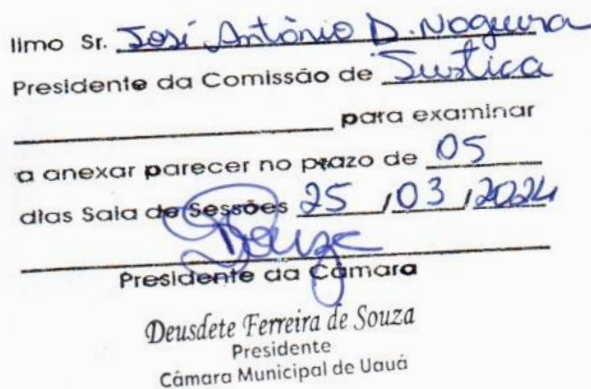 Ilmo Sr. José Antônio D. Nogueira
Presidente da Comissão de Justica
para examinar
a anexar parecer no prazo de 05
dias Sala de Sessões 25 / 03 / 2024
Souza
Presidente da Câmara
Deusdete Ferreira de Souza
Presidente
Câmara Municipal de Uauá